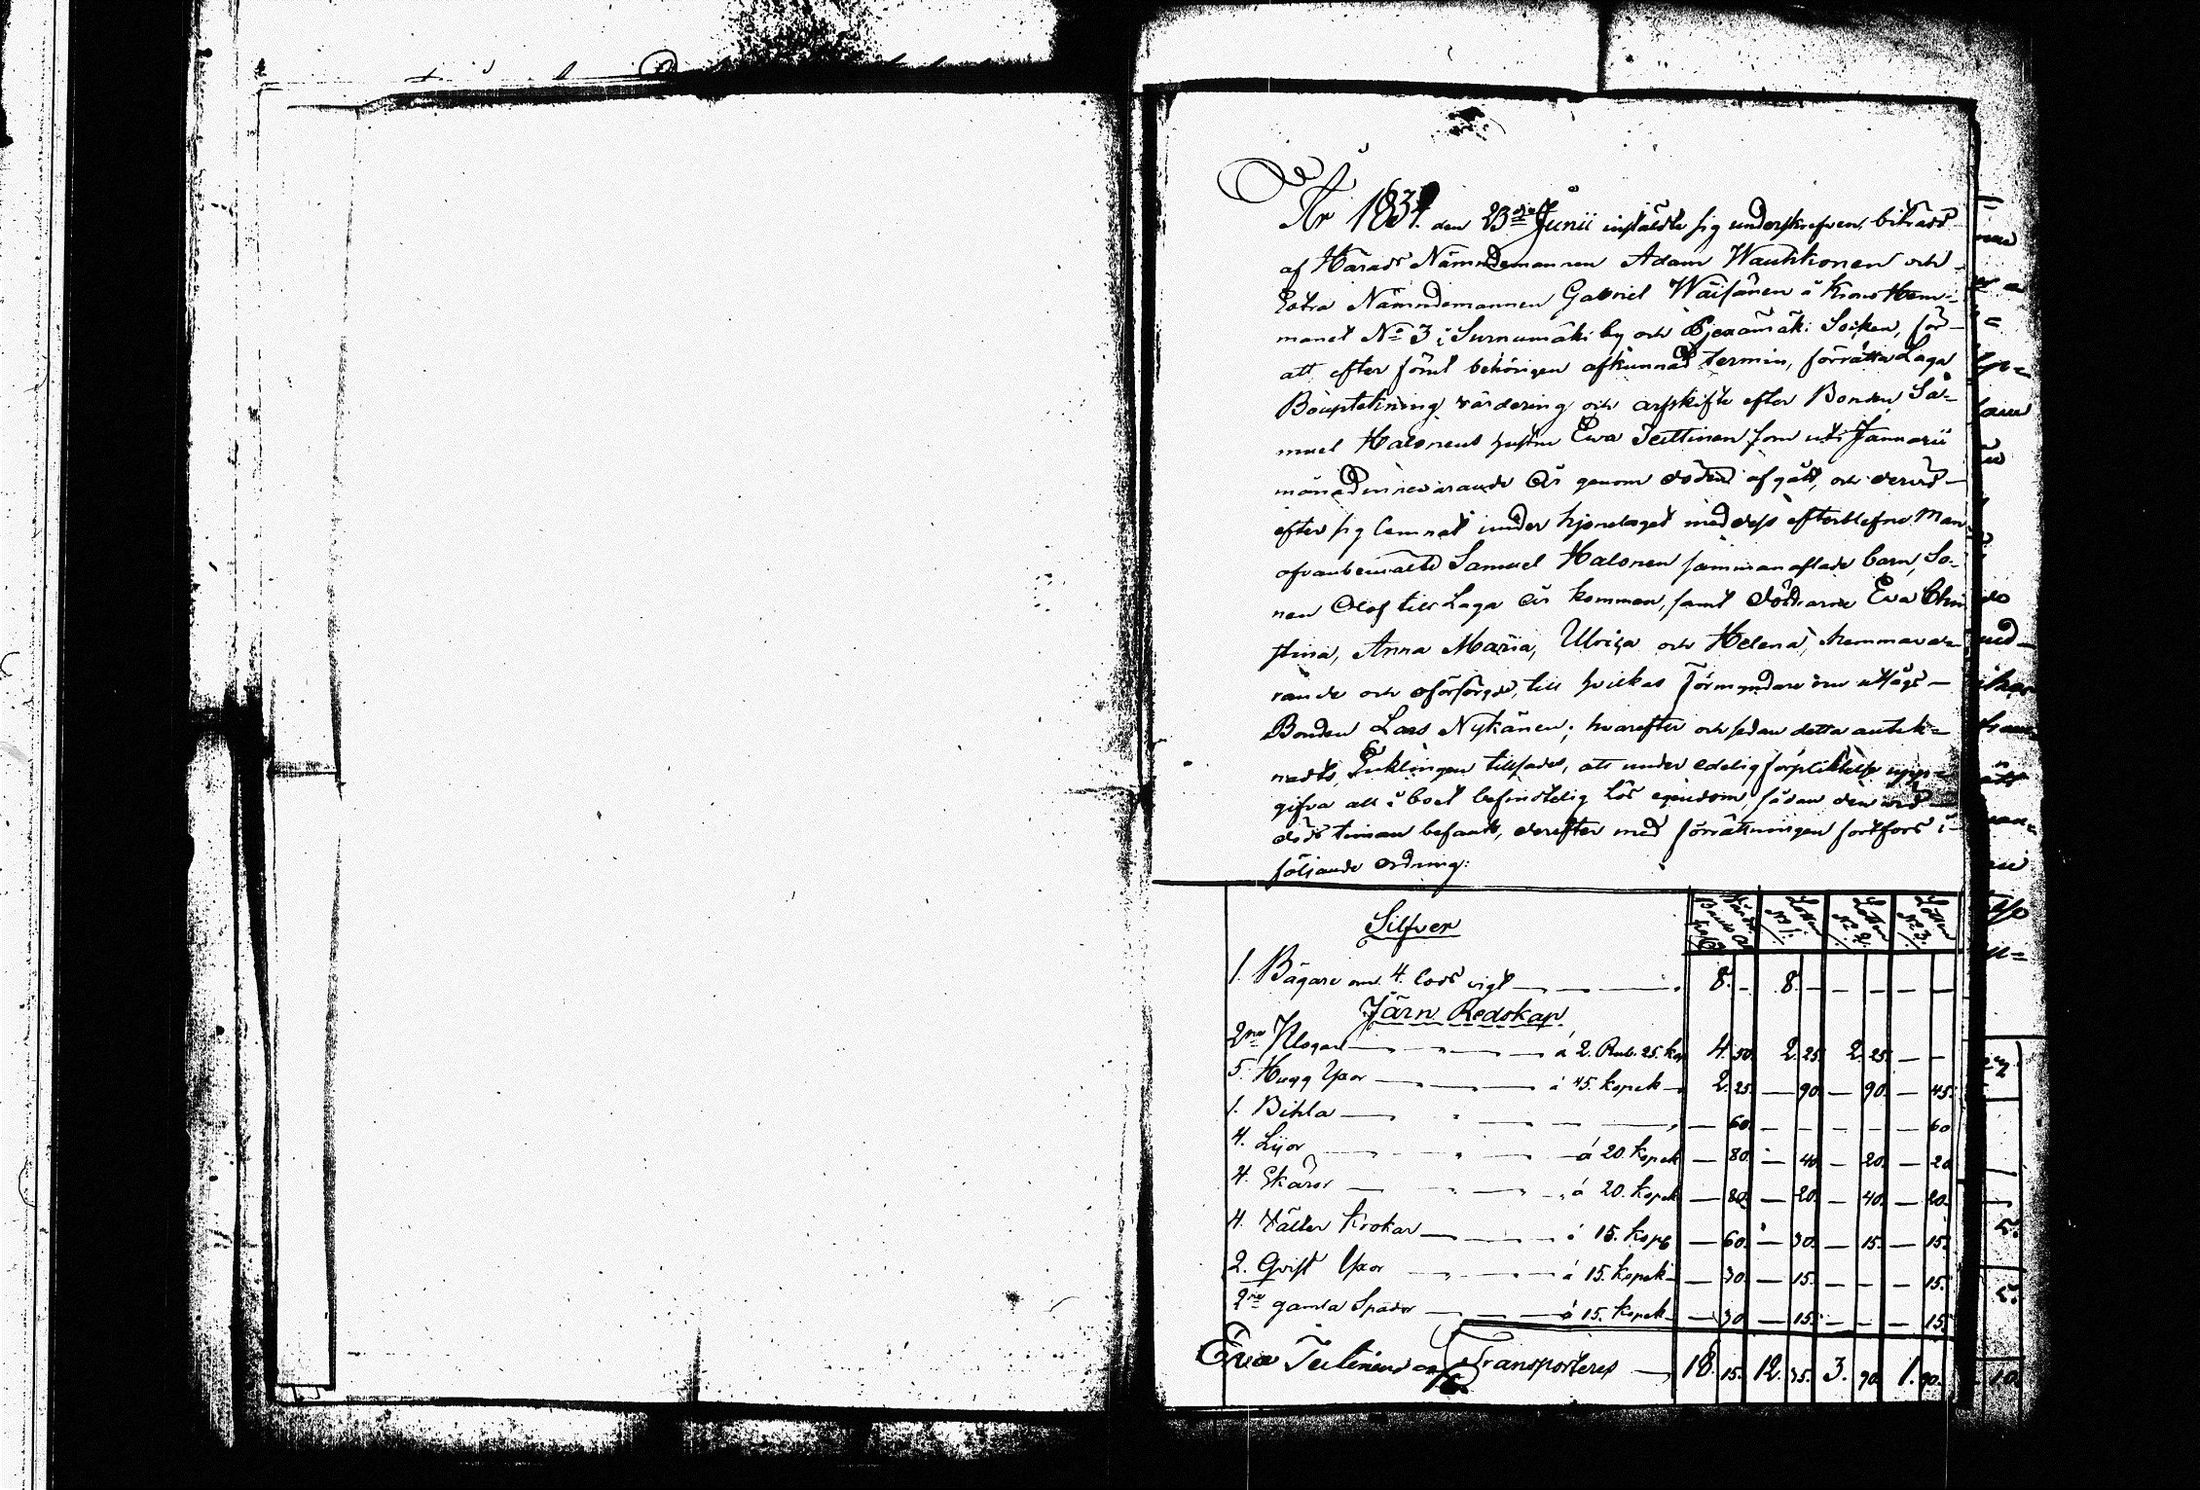 År 1834. den 23dje Junii instälde sig underskrefven, biträdd
af Härads Nämndemannen Adam Wauhkonen och
Extra Nämndemannen Gabriel Wäisänen å Krono Hem-
manet No 3 i Surnumäki by och Pjexämäki Socken, för
att efter förut behörigen afkunnad termin, förrätta Laga
Bouptekning värdering och arfskifte efter Bonden Sa-
muel Halonens hustru Ewa Teittinen som uti Januarii
månad innevarande År genom döden afgått, och dervid
efter sig lemnat under hjonelaget med dess efterblefne Man
ofvanbemälte Samuel Halonen sammanaflade barn, So-
nen Olof till Laga År kommen, samt döttrarne Eva Chri
stina, Anna Maria, Ulrica och Helena, hemmava-
rande och oförsörgde, till hvilkas Förmyndare
Bonden Lars Nykänen; hvarefter och sedan detta antek-
nadts, Enklingen tillsades, att under edelig förpliktelse upp-
gifva all i boet befindtelig lös egendom, sådan den vid
döds timan befants, derefter med förrättningen fortfors i
följande ordning:
Silfver
Lotten No 1. Lotten No 2. Lotten No 3.
1. Bägare om 4. lods vigt — 8. — 8. — — — — —
Järn Redskap
2ne Plogar — á 2. Rub. 25. kop 4. 50. 2. 25. 2. 25. — —
5. Hugg Yxor — á 45. kopek — 2. 25. — 90. — 90. — 45.
1. Bihla — — 60. — — — — — 60
4. Lijor — á 20. kopek — 80. — 40. — 20. — 20
4. Skäror — á 20. kopek — 80. — 20. — 40. — 20.
4. Fäller krokar — á 15. kopek — 60. — 30. — 15. — 15.
2. Qvist Yxor — á 15. kopek — 30. — 15. — — — 15.
2ne gamla Spador — á 15. kopek — 30 — 15. — — — 15.
Transporteres — 18. 15. 12. 35. 3. 90. 1. 90.